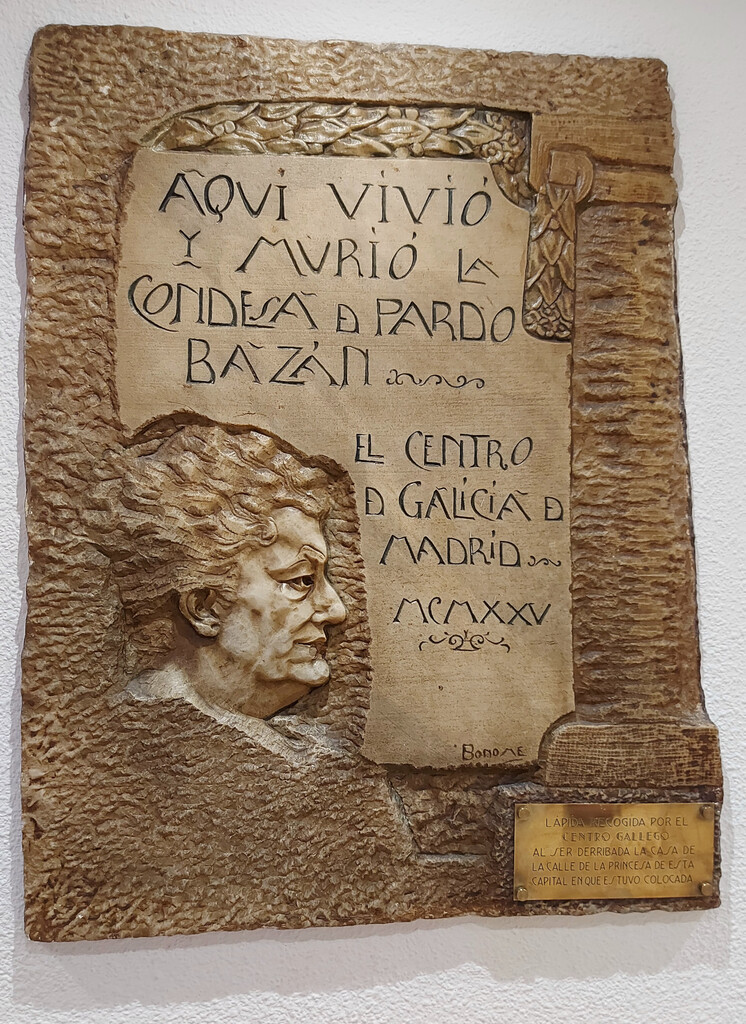 AQVI VIVIÓ
Y MVRIÓ LA
CONDESA D PARDO
BAZÁN
EL CENTRO
D GALICIA D
MADRID
MCMXXV
BONOME
LÁPIDA RECOGIDA POR EL
CENTRO GALLEGO
AL SER DERRIBADA LA CASA DE
LA CALLE DE LA PRINCESA DE ESTA
CAPITAL EN QUE ESTUVO COLOCADA